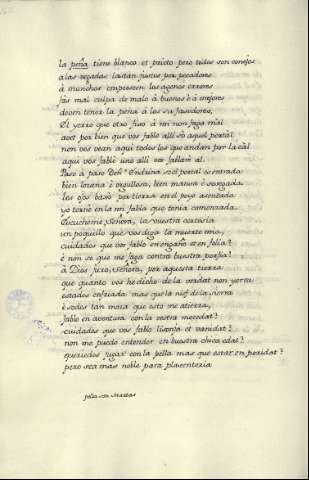 la peña tiene blanco et prieto pero todos son conejos
a las vegadas lastan justos por pecadores
á munchos empeescen los agenos errores
fás mal culpa de malo á buenos é á mejores
deven tener la pena á los sus fasedores.
El yerro que otro fiso á mí non faga mal
avet por bien que vos fable allí só aquel portal
non vos vean aquí todos los que andan por la cal
aquí vos fablé uno allí vos fablaré al.
Paso á paso Doña Endrina so el portal es entrada
bien lozana é orgullosa, bien mansa é sosegada
los ojos baxó por tierra en el poyo asentada
yo torné en la mi fabla que tenía comenzada.
Escucheme, Señora, la vuestra cortesia
un poquillo que vos diga la muerte mia,
cuidades que vos fablo en engaño et en folía?
é non sé que me faga contra vuestra porfia?
á Dios juro, Señora, por aquesta tierra
que quanto vos he dicho de la verdat non yerra
estades enfriada mas que la nief de la sierra
é sodes tan moza que esto me atierra,
fablo en aventura con la vostra mocedat?
cuidades que vos fablo lisonja et vanidat?
non me puedo entender en vuestra chica edat?
queriedes jugar con la pella mas que estar en poridat?
pero sea mas noble para plasenteria